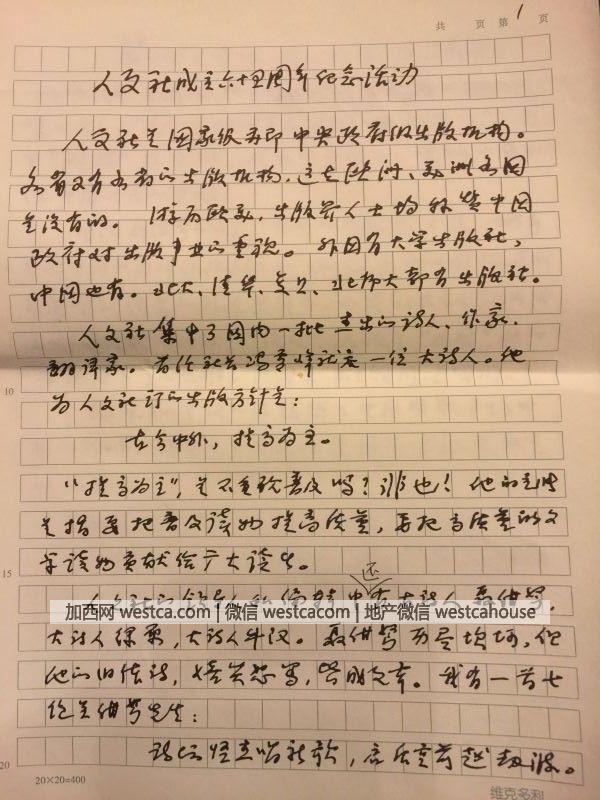 共 页 第 1 页
人文社成立六十五周年纪念活动
人文社是国家级亦即中央政府级出版机构。
各省又有各省的出版机构，这在欧洲、美洲各国
是没有的。 出版界人士均称赞中国
政府对出版事业的重视。外国有大学出版社，
中国也有。北大、清华、复旦、北师大都有出版社。
人文社集中了国内一批杰出的诗人、作家、
翻译家。首任社长冯雪峰就是一位大诗人。他
为人文社订的出版方针是：
10
古今中外，提高为主。
“提高为主”，是不重视普及吗？非也！他的意思
是指要把普及读物提高质量，要把高质量的文
学读物贡献给广大读者。
15
还
人文社的 中有大诗人聂绀弩，
加西网 westca.com | 微信 westcacom | 地产微信 westcahouse
大诗人绿原，大诗人牛汉。聂绀弩历尽坎坷，但
他的旧体诗，嬉笑怒骂，皆成文章。我有一首七
绝 绀弩先生：
20
20×20=400
维克多利